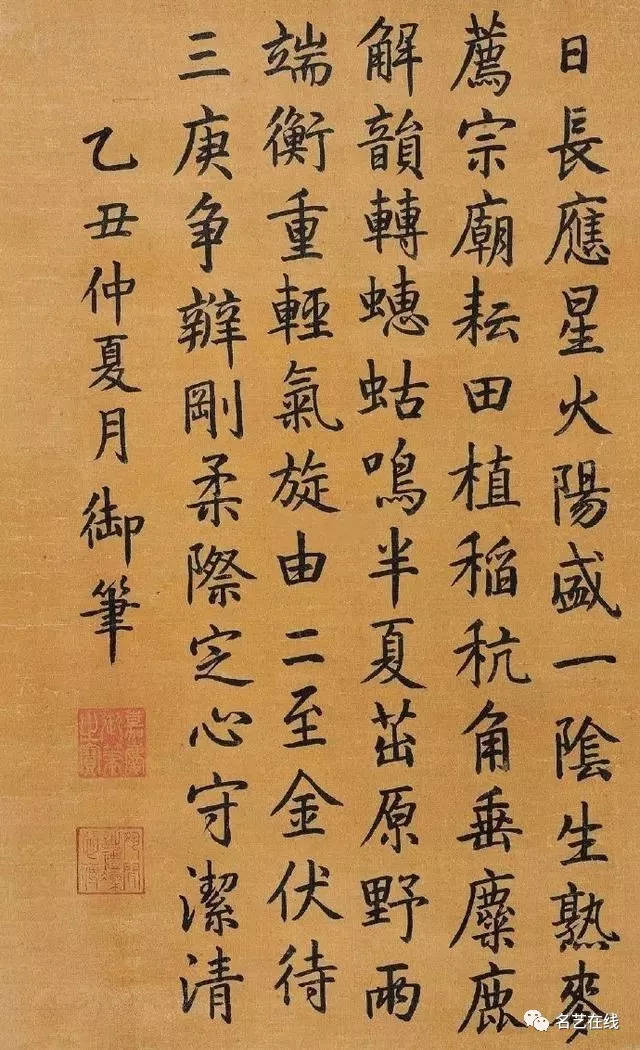 日長應星火陽盛一陰生熟麥
薦宗廟耘田植稻秔角垂麋鹿
解韻轉蟪蛄鳴半夏茁原野兩
端衡重輕氣旋由二至金伏待
三庚争辨剛柔際定心守潔清
乙丑仲夏月御筆
嘉慶御筆之寶
名艺在线